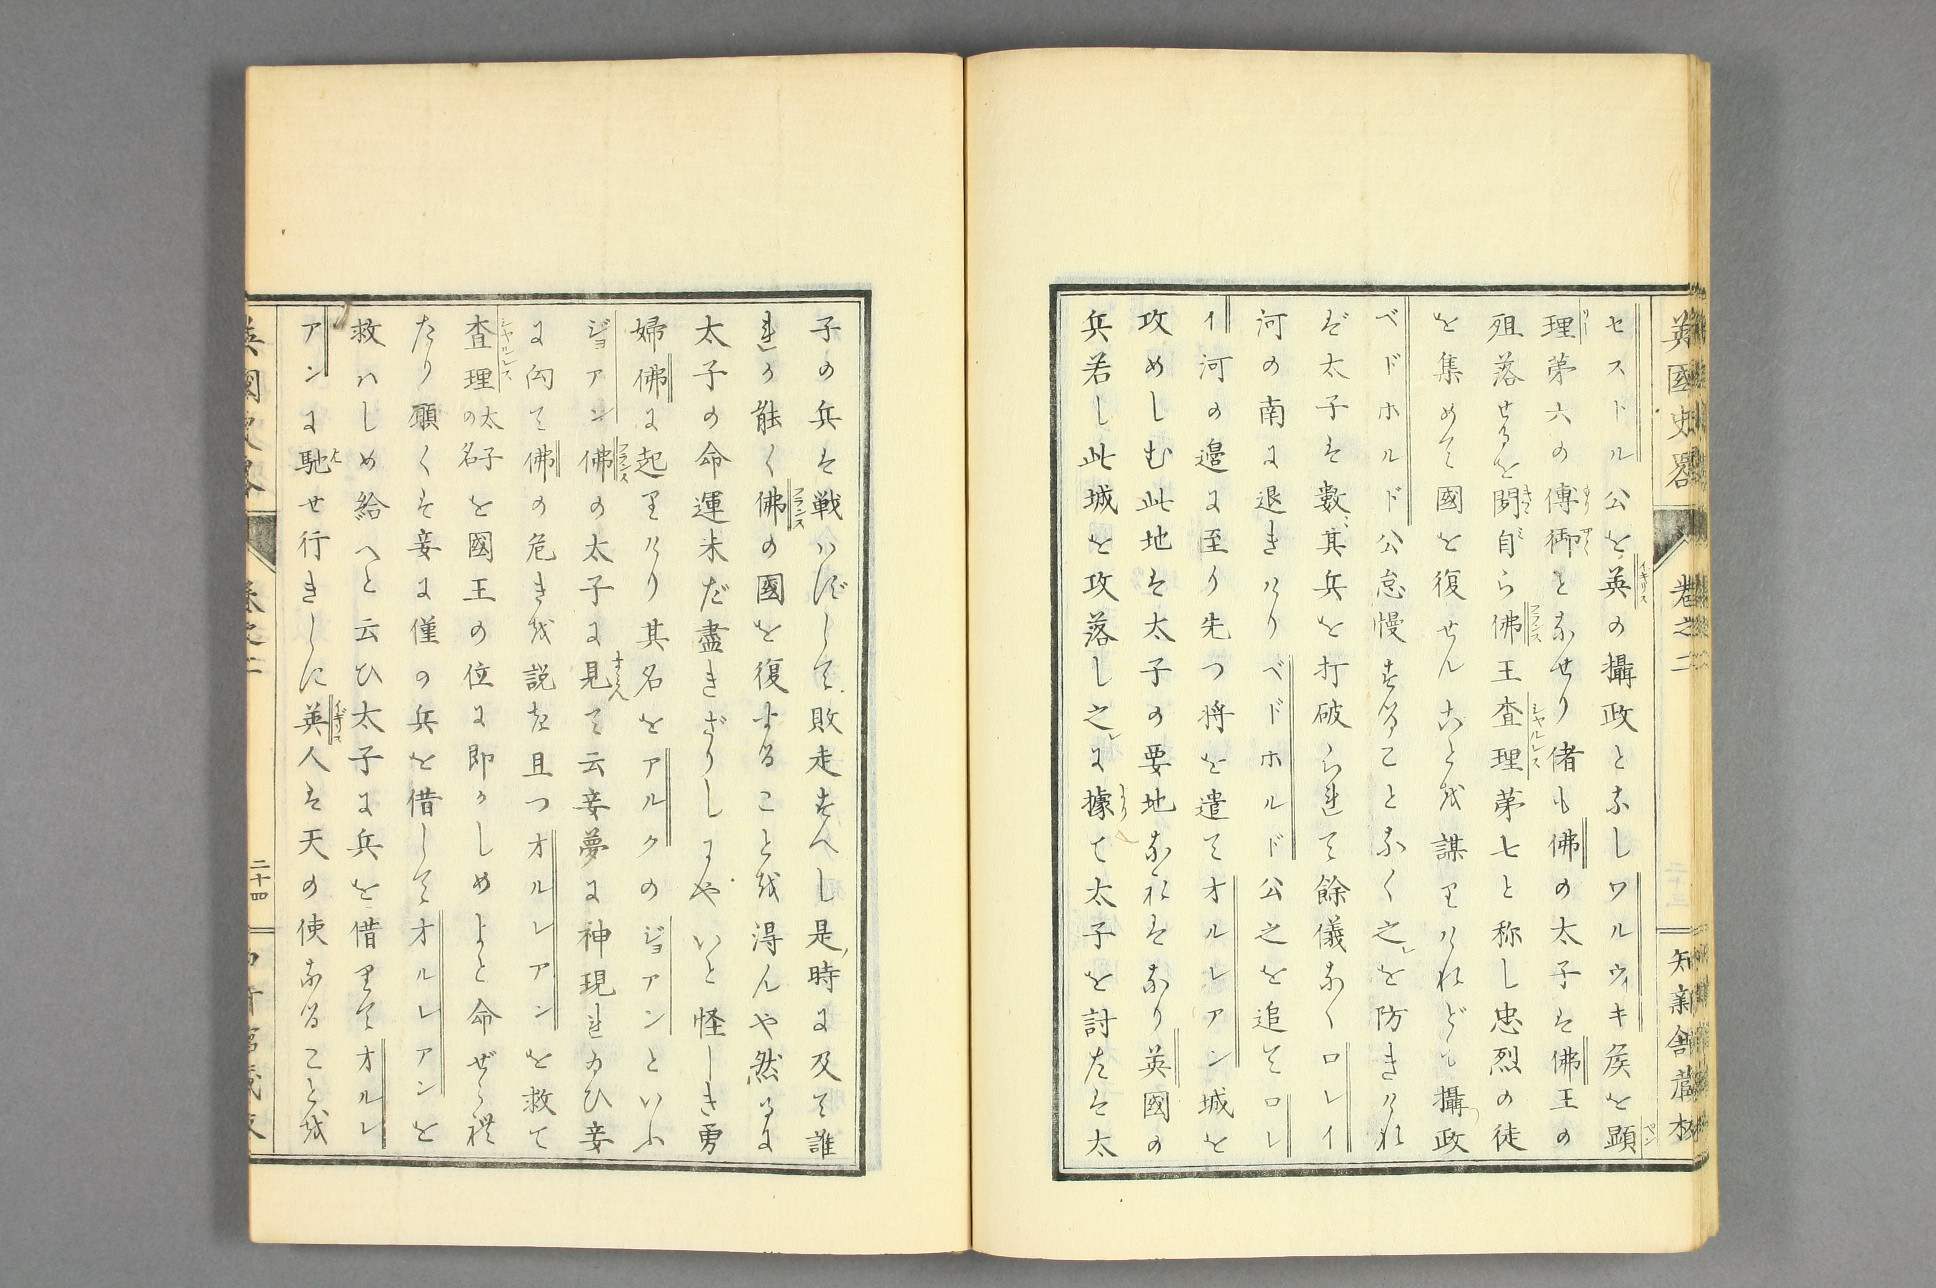 英國史畧
巻之二
知新舎蔵板
セストル公を英の攝政となしワルウィキ侯を顕
理第六の傳御となせり偖も佛の太子は佛王の
殂落せるを聞自ら佛王査理第七と称し忠烈の徒
を集めて國を復せんことを謀りけれども攝政
ベドホルド公怠慢することなく之を防きけれ
ば太子は數〻其兵を打破られて餘儀なくロレイ
河の南に退きけりベドホルド公之を追てロレ
イ河の邉に至り先つ将を遣てオルレアン城を
攻めしむ此地は太子の要地なればなり英國の
兵若し此城を攻落し之に據て太子を討たは太
子の兵は戦はずして敗走すへし是時に及て誰
れか能く佛の國を復することを得んや然るに
太子の命運未だ盡きざりしにやいと怪しき勇
婦佛に起りけり其名をアルクのジョアンといふ
ジョアン佛の太子に見て云妾夢に神現れ給ひ妾
に向て佛の危きを説き且つオルレアンを救て
査理太子の名を國王の位に即かしめよと命ぜら禮
たり願くは妾に僅の兵を借してオルレアンを
救はしめ給へと云ひ太子に兵を借りてオルレ
アンに馳せ行きしに英人は天の使なることを
二十四